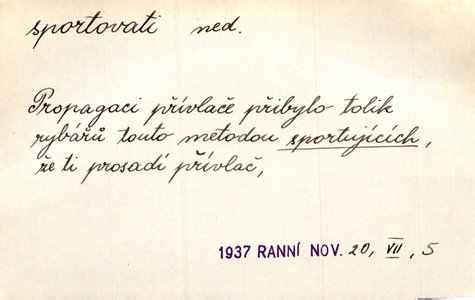 sportovati ned.
Propagaci přívlače přibylo tolik
rybářů touto metodou sportujících,
že ti prosadí přívlač,
1937 RANNÍ NOV. 20, VII, 5